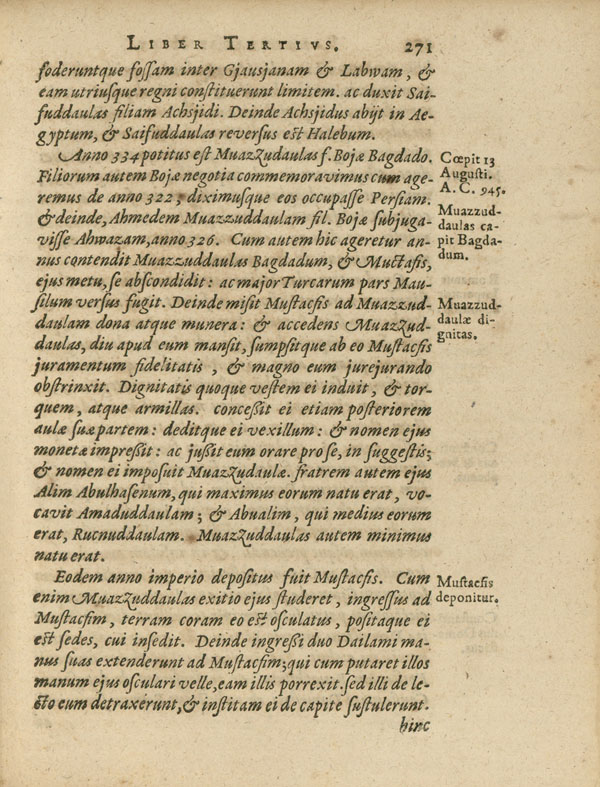 LIBER TERTIVS. 271
foderuntque fossam inter Gjausjanam & Labwam, &
eam utriusque regni constituerunt limitem. ac duxit Sai-
fuddaulas filiam Achsjidi. Deinde Achsjidus abijt in Ae-
gyptum, & Saifuddaulas reversus est Halebum.
Anno 334 potitus est Muazzudaulas f. Bojæ Bagdado.
Filiorum autem Bojæ negotia commemoravimus cum age-
remus de anno 322; diximusque eos occupasse Persiam.
& deinde, Ahmedem Muazzuddaulam fil. Bojæ subjuga-
visse Ahwazam, anno 326. Cum autem hic ageretur an-
nus contendit Muazzuddaulas Bagdadum, & Muctafis,
ejus metu, se abscondidit: ac major Turcarum pars Mau-
silum versus fugit. Deinde misit Mustacfis ad Muazzud-
daulam dona atque munera: & accedens Muazzud-
daulas, diu apud eum mansit, sumpsitque ab eo Mustacfis
juramentum fidelitatis, & magno eum jurejurando
obstrinxit. Dignitatis quoque vestem ei induit, & tor-
quem, atque armillas. concessit ei etiam posteriorem
aulæ suæ partem: deditque ei vexillum: & nomen ejus
monetæ impressit: ac jussit eum orare pro se, in suggestis;
& nomen ei imposuit Muazzudaulæ. fratrem autem ejus
Alim Abulhasenum, qui maximus eorum natu erat, vo-
cavit Amaduddaulam; & Abualim, qui medius eorum
erat, Rucnuddaulam. Muazzuddaulas autem minimus
natu erat.
Eodem anno imperio depositus fuit Mustacfis. Cum
enim Muazzuddaulas exitio ejus studeret, ingressus ad
Mustacfim, terram coram eo est osculatus, positaque ei
est sedes, cui insedit. Deinde ingressi duo Dailami ma-
nus suas extenderunt ad Mustacfim; qui cum putaret illos
manum ejus osculari velle, eam illis porrexit. sed illi de le-
cto eum detraxerunt, & institam ei de capite sustulerunt.
hinc
Cœpit 13
Augusti.
A. C. 945.
Muazzud-
daulas ca-
pit Bagda-
dum.
Muazzud-
daulæ di-
gnitas.
Mustacfis
deponitur.